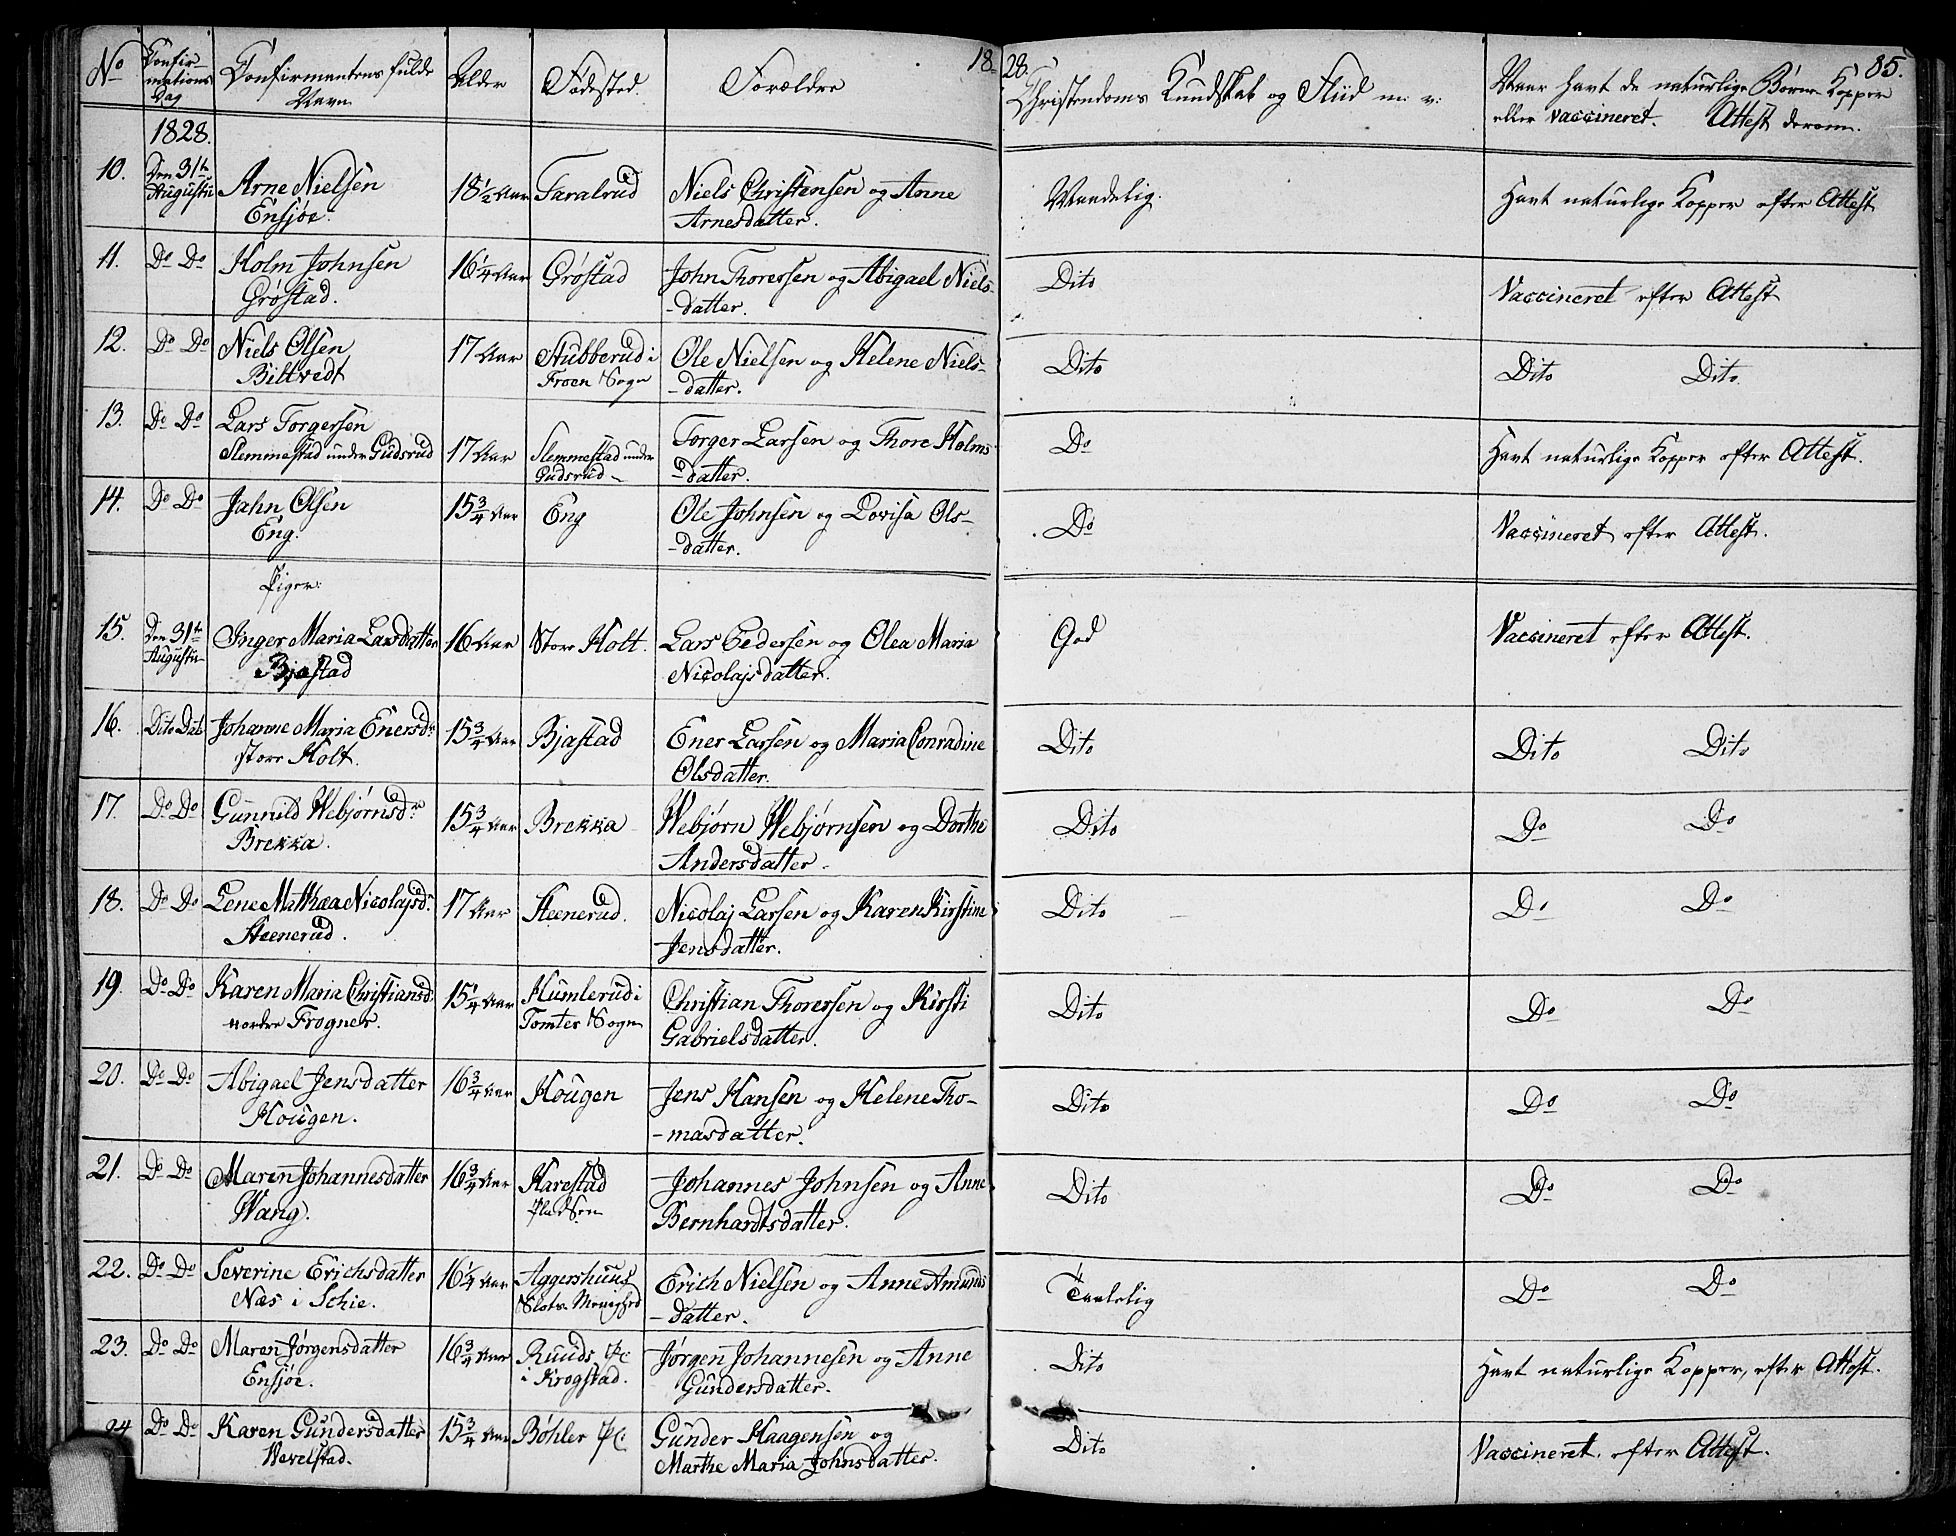 No Confir- Confirmantens fulde Alder Fødested. Forældre 18 28. Christendoms Kundskab og Fliid m: v: Naar havt de naturlige Børne Kopper 85.
mations Navn eller vaccineret. Attest derom.
Dag
1828.
10. Den 31te Arne Nielsen 18 1/2 Aar Taralrud Niels Christensen og Anne Maadelig. Havt naturlige Kopper efter Attest
Augustii Ensjøe. Arnesdatter.
11. Do Do Holm Johnsen 16 1/4 Aar Grøstad John Thoressen og Abigael Niels- Dito Vaccineret efter Attest
Grøstad. -datter.
12. Do Do Niels Olsen 17 Aar Stubberud i Ole Nielsen og Helene Niels- Dito Dito Dito.
Biltvedt Froen Sogn -datter.
13. Do Do Lars Torgersen 17 Aar Slemmestad under Torger Larsen og Thore Holms- Do Havt naturlige Kopper efter Attest.
Slemmestad under Gudsrud Gudsrud -datter.
14. Do Do Jahn Olsen 15 3/4 Aar Eng Ole Johnsen og Lovisa Ols- Do Vaccineret efter Attest.
Eng. -datter.
Piger:
15. Den 31te Inger Maria Larsdatter 16 Aar Store Holt. Lars Pedersen og Olea Maria God Vaccineret efter Attest.
Augustii Bjastad Nicolajsdatter.
16. Dito Dito Johanne Maria Enersdr 15 3/4 Aar Bjastad Ener Larsen og Maria Conradine Dito Dito Dito
store Holt. Olsdatter.
17. Do Do Gunnild Webjørnsdr 15 3/4 Aar Brekka Webjørn Webjørnsen og Dorthe Dito Do Do
Brekka. Andersdatter.
18. Do Do Lene Mathea Nicolajsdr 17 Aar Steenerud. Nicolaj Larsen og Karen Kirstine Dito Do Do
Steenerud. Jensdatter.
19. Do Do Karen Maria Christiansd. 15 1/4 Aar Humlerud i Christian Thoressen og Kirsti Dito Do Do
nordre Frogner. Tomter Sogn Gabrielsdatter.
20. Do Do Abigael Jensdatter 16 3/4 Aar Hougen Jens Hansen og Helene Tho- Dito Do Do
Hougen. -masdatter.
21. Do Do Maren Johannesdatter 16 3/4 Aar Harestad Johannes Johnsen og Anne Dito Do Do
Wang. Pladsen Bernhardtsdatter.
22. Do Do Severine Erichsdatter 16 1/4 Aar Aggershuus Erich Nielsen og Anne Amunds Taalelig Do Do
Næs i Schie. Slots Menighed -datter.
23. Do Do Maren Jørgensdatter 16 3/4 Aar Ruuds Pl: Jørgen Johannesen og Anne Dito Havt naturlige Kopper, efter Attest.
Ensjøe. i Krogstad. Gundersdatter.
24 Do Do Karen Gundersdatter 15 3/4 Aar Bøhler Pl: Gunder Haagensen og Dito Vaccineret efter Attest.
Wevelstad. Marthe Maria Johnsdatter.